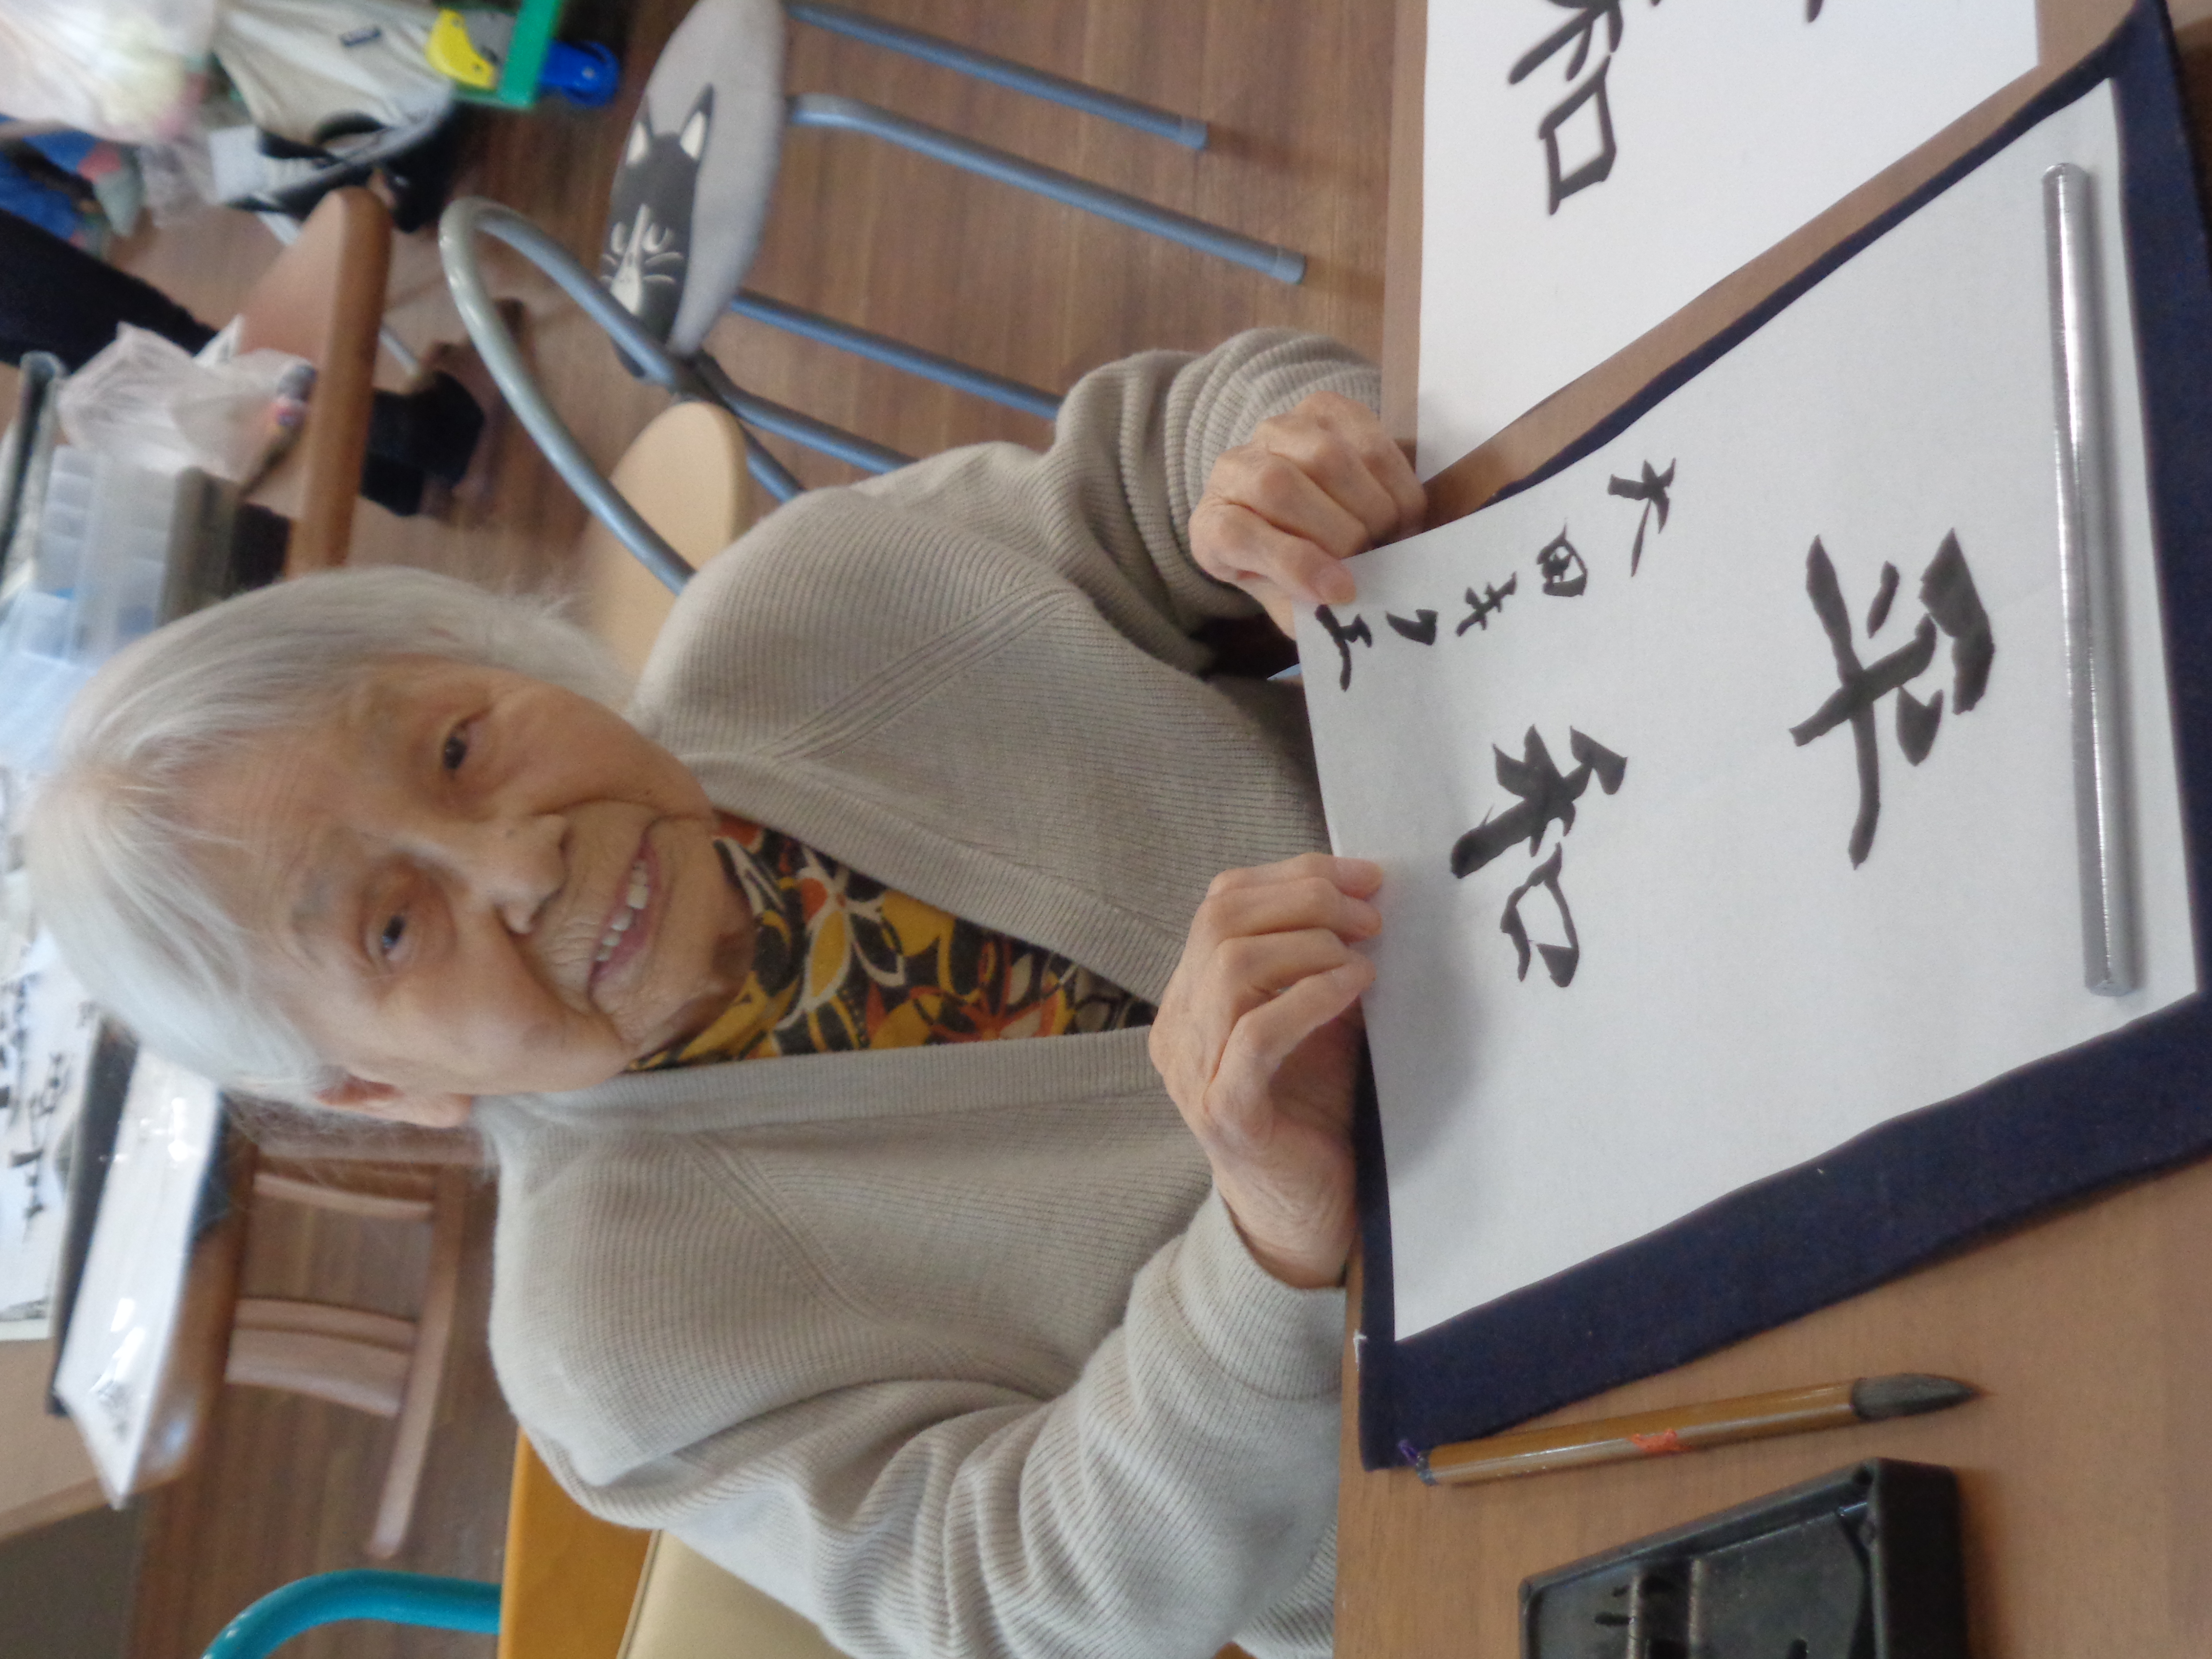 平和
太田キクエ
和